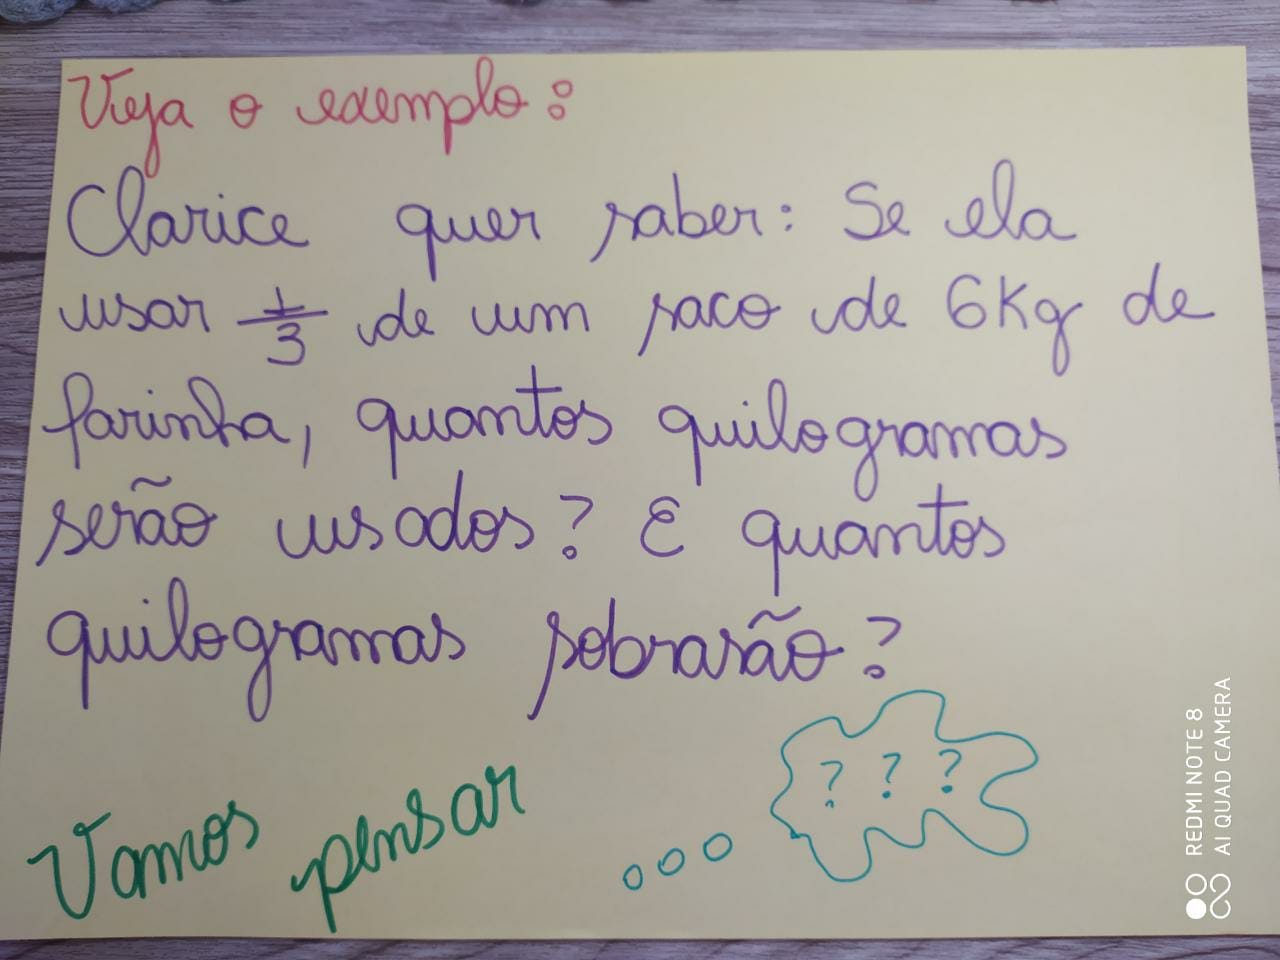 Veja o exemplo:
Clarice quer saber: Se ela
usar 1/3 de um saco de 6Kg de
farinha, quantos quilogramas
serão usados? E quantos
quilogramas sobrarão?
? ? ?
Vamos pensar
REDMI NOTE 8
AI QUAD CAMERA